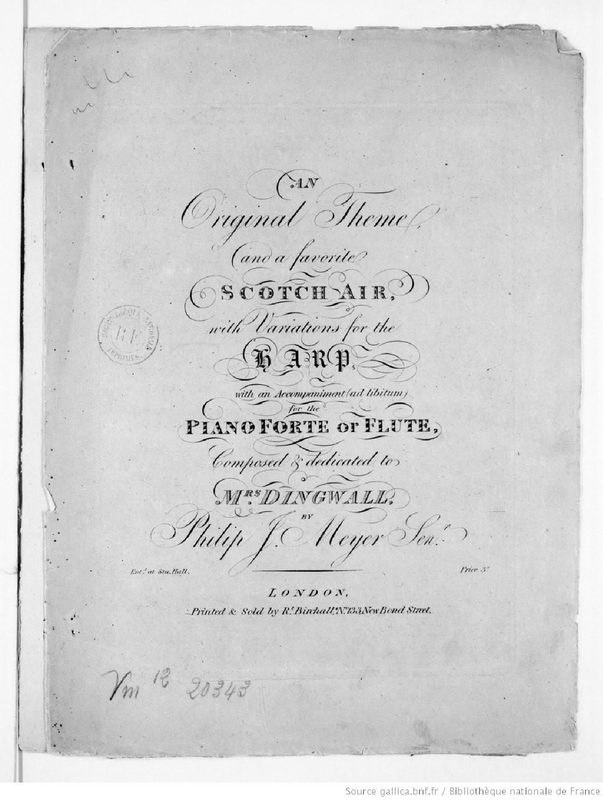 AN
Original Theme,
and a favorite
SCOTCH AIR,
with Variations for the
HARP,
with an Accompaniment (ad libitum)
for the
PIANO FORTE or FLUTE,
Composed & dedicated to
MRS. DINGWALL.
BY
Philip J. Meyer Senr.
Entd. at Sta. Hall. Price 3s.
LONDON,
Printed & Sold by Rt. Birchall, No. 133, New Bond Street.
Vm 12 20343
Source gallica.bnf.fr / Bibliothèque nationale de France